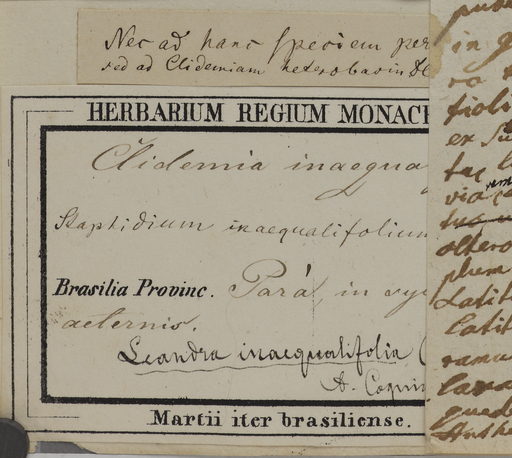 Nec ad hanc speciem per
sed ad Clidemiam heterobasin DC
HERBARIUM REGIUM MONAC
Clidemia inaequa
Staphidium inaequalifolium
Brasilia Provinc. Pará, in sy
aeternis.
Leandra inaequalifolia (
A. Cogni
Martii iter brasiliense.
in
ex
altero
phum
Latit
latit
ramu